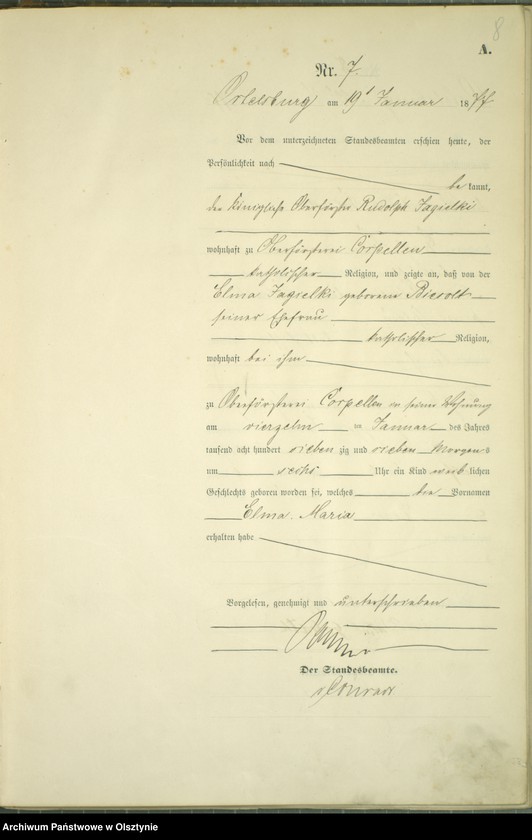 8
A.
Nr. 7.
Ortelsburg am 19t Januar 1877
Vor dem unterzeichneten Standesbeamten erschien heute, der
Persönlichkeit nach
be kannt,
der Königliche Oberförster Rudolph Jagielki
wohnhaft zu Oberförsterei Corpellen
katholischer Religion, und zeigte an, daß von der
Elma Jagielki geborene Biesolt
seiner Ehefrau
katholischer Religion,
wohnhaft bei ihm
zu Oberförsterei Corpellen in seiner Wohnung
am vierzehn im Januar des Jahres
tausend acht hundert sieben zig und sieben Morgens
um sechs Uhr ein Kind weib lichen
Geschlechts geboren worden sei, welches die Vornamen
Elma Maria
erhalten habe
Vorgelesen, genehmigt und unterschrieben
Der Standesbeamte.
Conrad
Archiwum Państwowe w Olsztynie